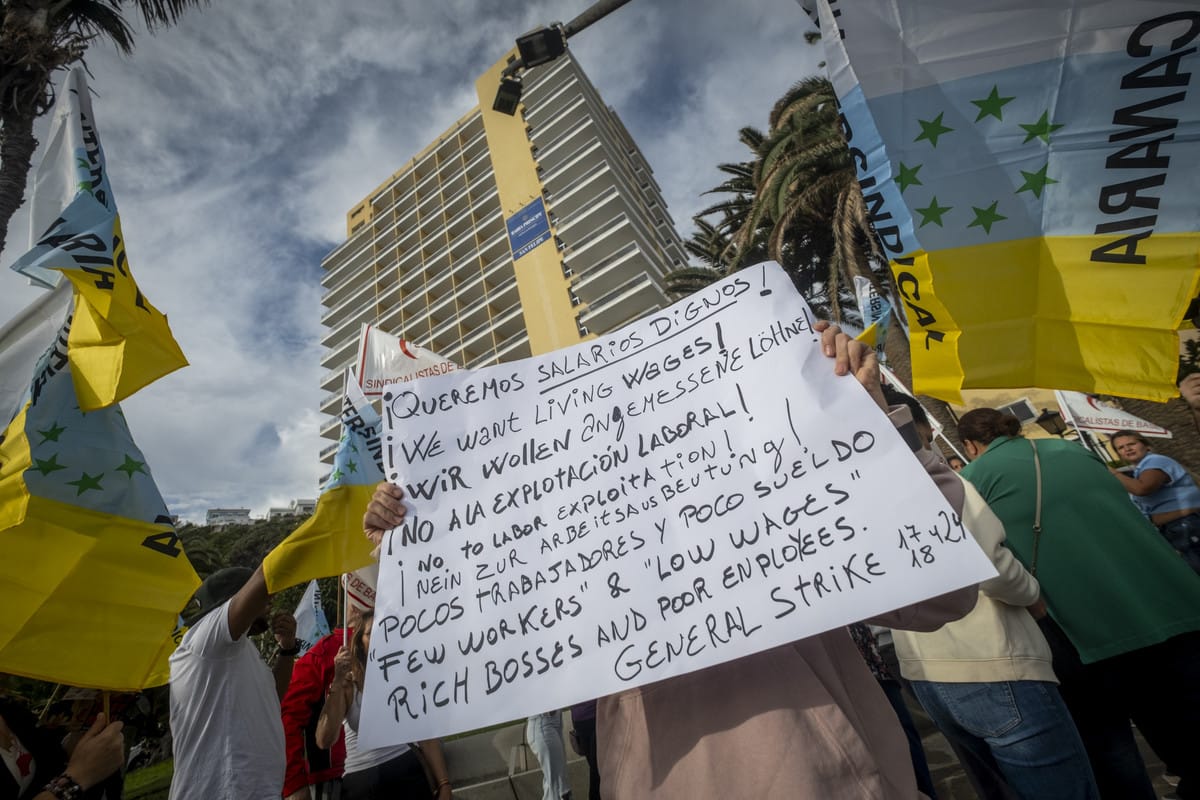 ¡QUEREMOS SALARIOS DIGNOS!
¡WE WANT LIVING WAGES!
¡WIR WOLLEN ANGEMESSENE LÖHNE!
¡NO A LA EXPLOTACIÓN LABORAL!
¡NO TO LABOR EXPLOITATION!
¡NEIN ZUR ARBEITSAUSBEUTUNG!
POCOS TRABAJADORES Y POCO SUELDO
"FEW WORKERS" & "LOW WAGES"
RICH BOSSES AND POOR ENPLOYEES.
GENERAL STRIKE 17 Y 18 24
BAHIA PRINCIPE
SAN FELIPE
SINDICALISTAS DE BA
SINDICAL
CANARIA
SINDICAL
ALISTAS DE BA